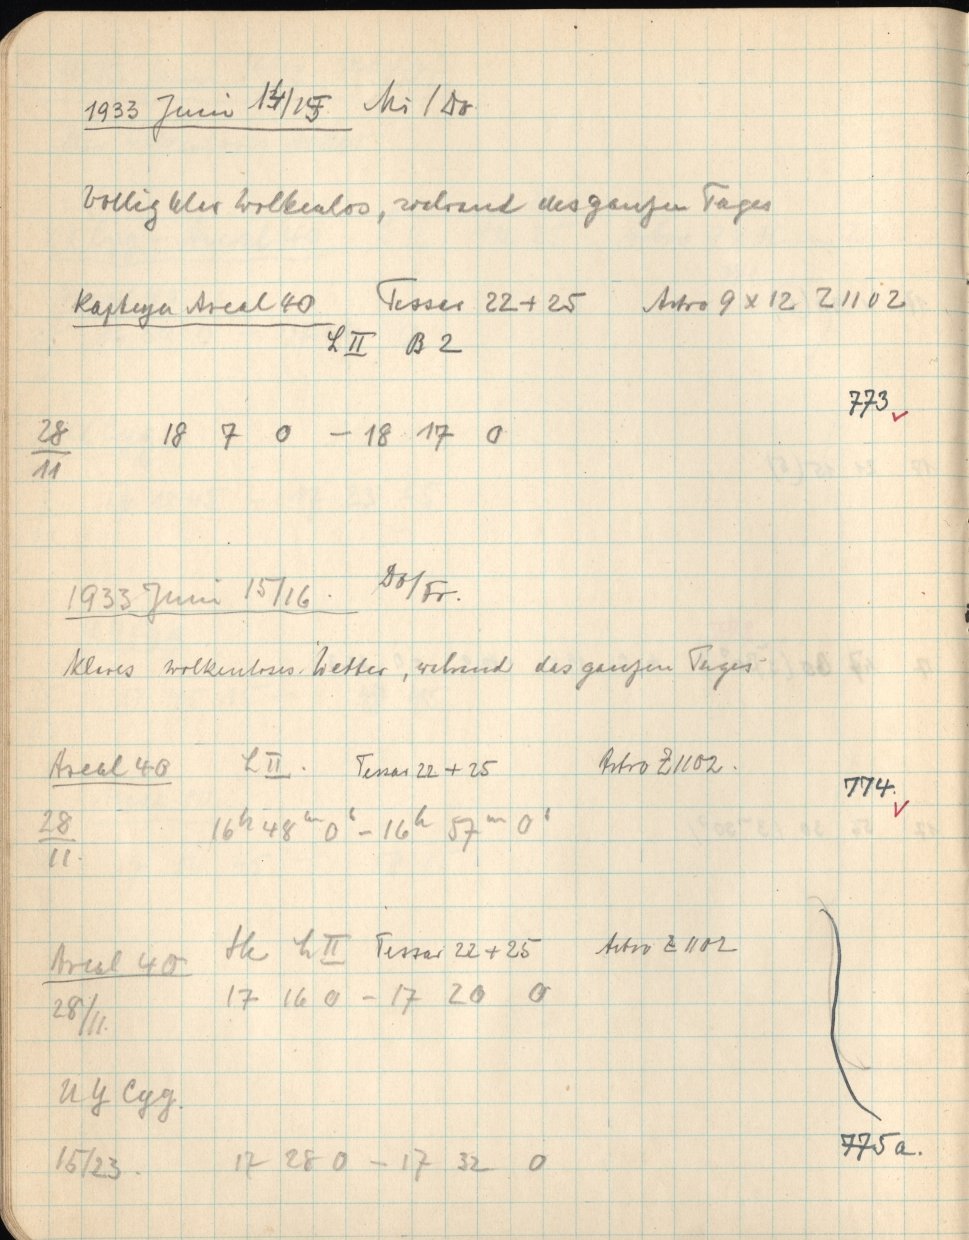 1933 Juni 14/15 Mi / Do
Völlig klar wolkenlos, während des ganzen Tages
Kapteyn Areal 40 Tessar 22 + 25 Astro 9 x 12 Z 1102
L II B 2
773
28/11 18 7 0 – 18 17 0
1933 Juni 15/16. Do/Fr.
Klares wolkenloses Wetter, während des ganzen Tages
Areal 40 L II. Tessar 22 + 25 Astro Z 1102.
774.
28/11. 16h 48m 0s – 16h 57m 0s
Areal 40 L II Tessar 22 + 25 Astro Z 1102
28/11. 17 16 0 – 17 20 0
Cyg.
775a.
15/23. 17 28 0 – 17 32 0